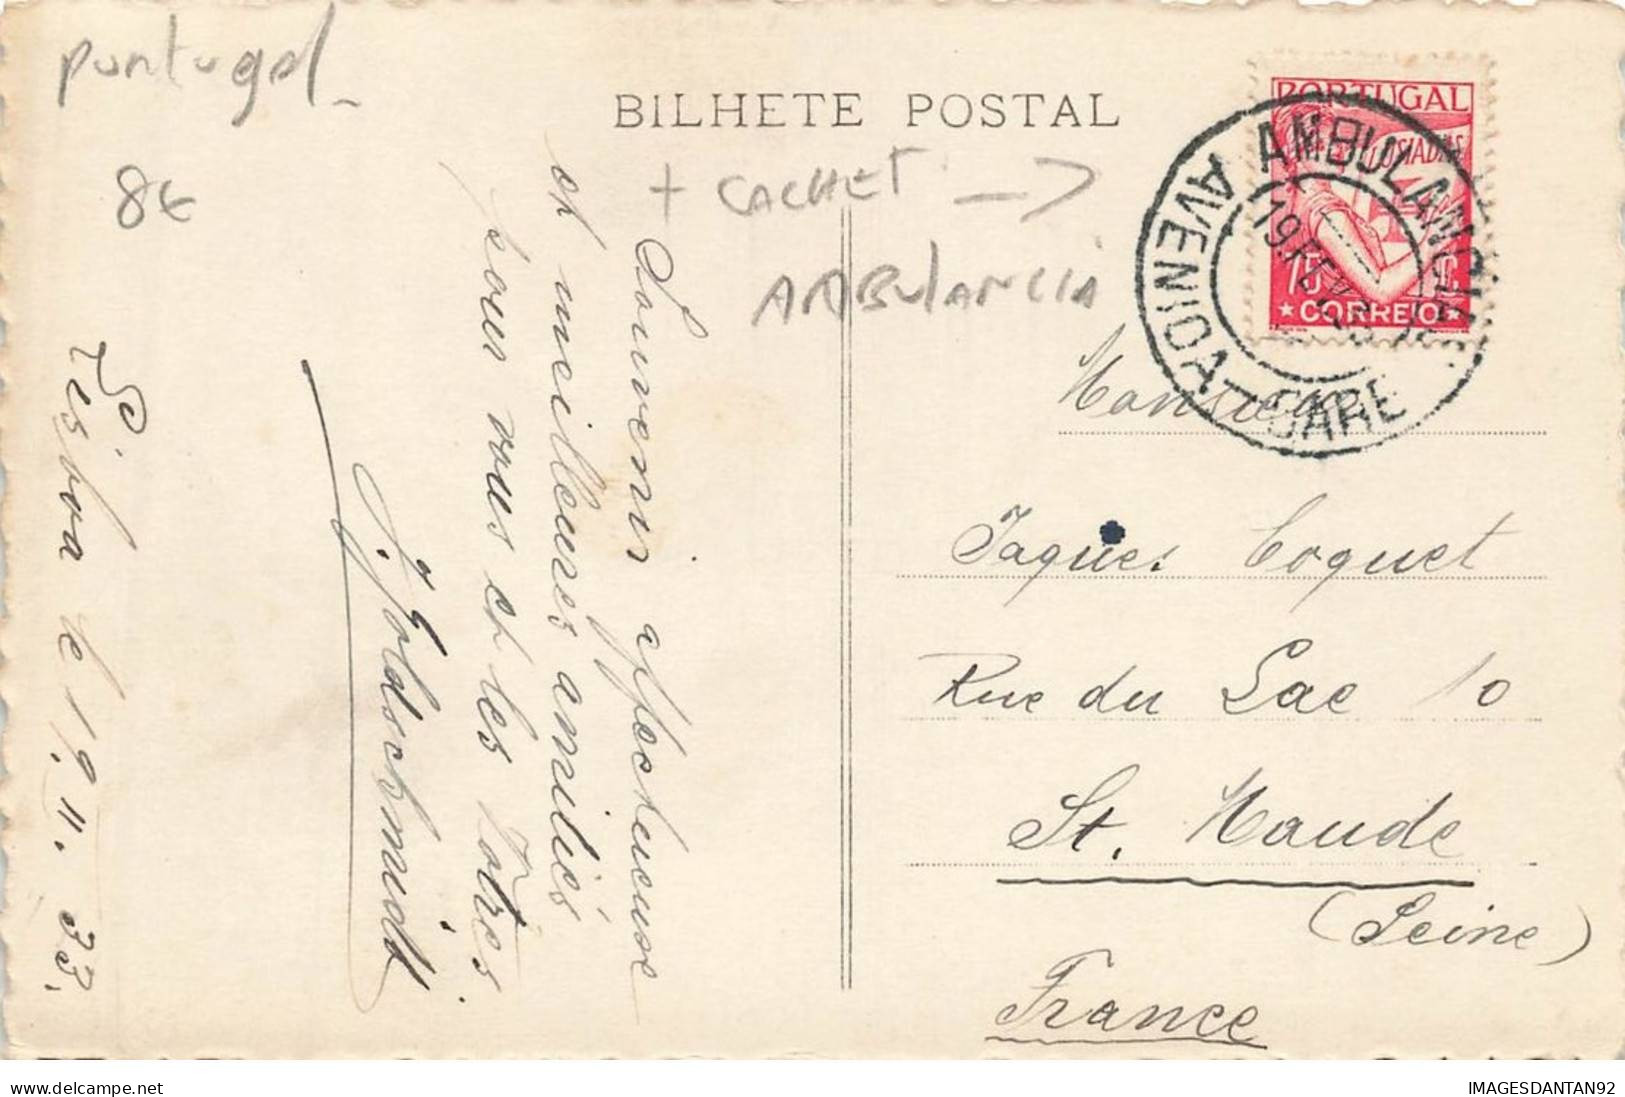 portugal
8€
BILHETE POSTAL
+ CACHET →
AMBULANCIA
PORTUGAL
LUSIADAS
75 C
★ CORREIO ★
AMBULANCIA
AVENIDA - GARE
19 FEV 33
Lisboa le 19.II.33.
Souvenir affectueuse
et meilleures amitiés
pour vous et les votres.
J. Goldschmidt
Monsieur
Jaques Coquet
Rue du Lac 10
St. Mande
(Seine)
France
delcampe.net
IMAGESDANTAN92